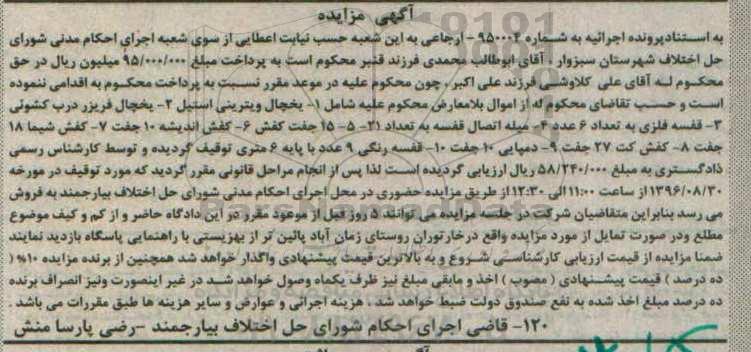 آگهی مزایده
به استنادپرونده اجرائیه به شماره ۹۵۰۰۰۴ - ارجاعی به این شعبه حسب نیابت اعطایی از سوی شعبه اجرای احکام مدنی شورای
حل اختلاف شهرستان سبزوار ، آقای ابوطالب محمدی فرزند قنبر محکوم است به پرداخت مبلغ ۹۵/۰۰۰/۰۰۰ میلیون ریال در حق
محکوم له آقای علی کلاوشی فرزند علی اکبر ، چون محکوم علیه در موعد مقرر نسبت به پرداخت محکوم به اقدامی ننموده
است و حسب تقاضای محکوم له از اموال بلامعارض محکوم علیه شامل ۱- یخچال ویترینی استیل ۲- یخچال فریزر درب کشوئی
۳- قفسه فلزی به تعداد ۶ عدد ۴- میله اتصال قفسه به تعداد ۲۱- ۵- ۱۵ جفت کفش ۶- کفش اندیشه ۱۰ جفت ۷- کفش شیما ۱۸
جفت ۸- کفش کت ۲۷ جفت ۹- دمپایی ۱۰ جفت ۱۰- قفسه رنگی ۹ عدد با پایه ۶ متری توقیف گردیده و توسط کارشناس رسمی
دادگستری به مبلغ ۵۸/۲۴۰/۰۰۰ ریال ارزیابی گردیده است لذا پس از انجام مراحل قانونی مقرر گردید که مورد توقیف در مورخه
۱۳۹۶/۰۸/۳۰ از ساعت ۱۱:۰۰ الی ۱۲:۳۰ از طریق مزایده حضوری در محل اجرای احکام مدنی شورای حل اختلاف بیارجمند به فروش
می رسد بنابراین متقاضیان شرکت در جلسه مزایده می توانند ۵ روز قبل از موعود مقرر در این دادگاه حاضر و از کم و کیف موضوع
مطلع ودر صورت تمایل از مورد مزایده واقع درخارتوران روستای زمان آباد پائین تر از بهزیستی با راهنمایی پاسگاه بازدید نمایند
ضمنا مزایده از قیمت ارزیابی کارشناسی شروع و به بالاترین قیمت پیشنهادی واگذار خواهد شد همچنین از برنده مزایده ۱۰% (
ده درصد ) قیمت پیشنهادی ( مصوب ) اخذ و مابقی مبلغ نیز ظرف یکماه وصول خواهد شد در غیر اینصورت ونیز انصراف برنده
ده درصد مبلغ اخذ شده به نفع صندوق دولت ضبط خواهد شد . هزینه اجرائی و عوارض و سایر هزینه ها طبق مقررات می باشد .
۱۲۰- قاضی اجرای احکام شورای حل اختلاف بیارجمند -رضی پارسا منش